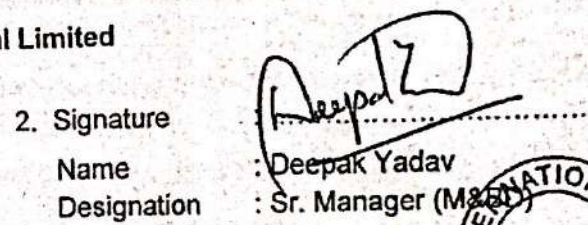 al Limited
2. Signature : Deepak
Name : Deepak Yadav
Designation : Sr. Manager (M&BD)
ENATIO